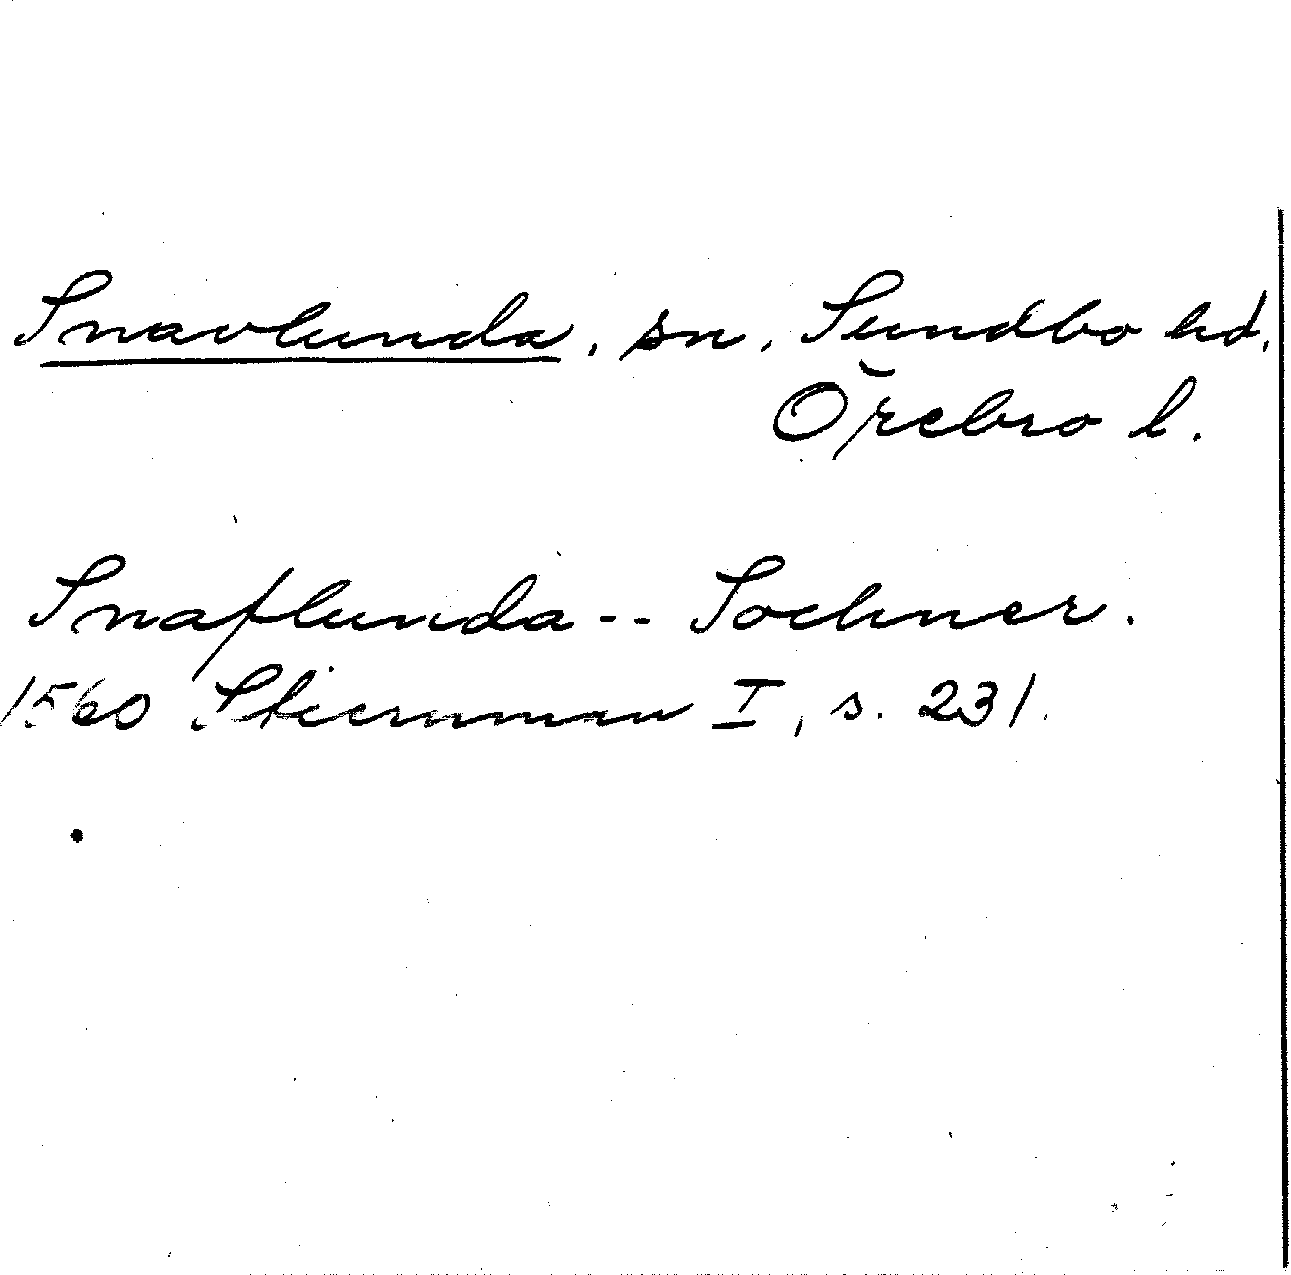 Snavlunda, sn, Sundbo hd,
Örebro l.
Snaflunda -- Sochner.
1560 Stiernman I, s. 231.